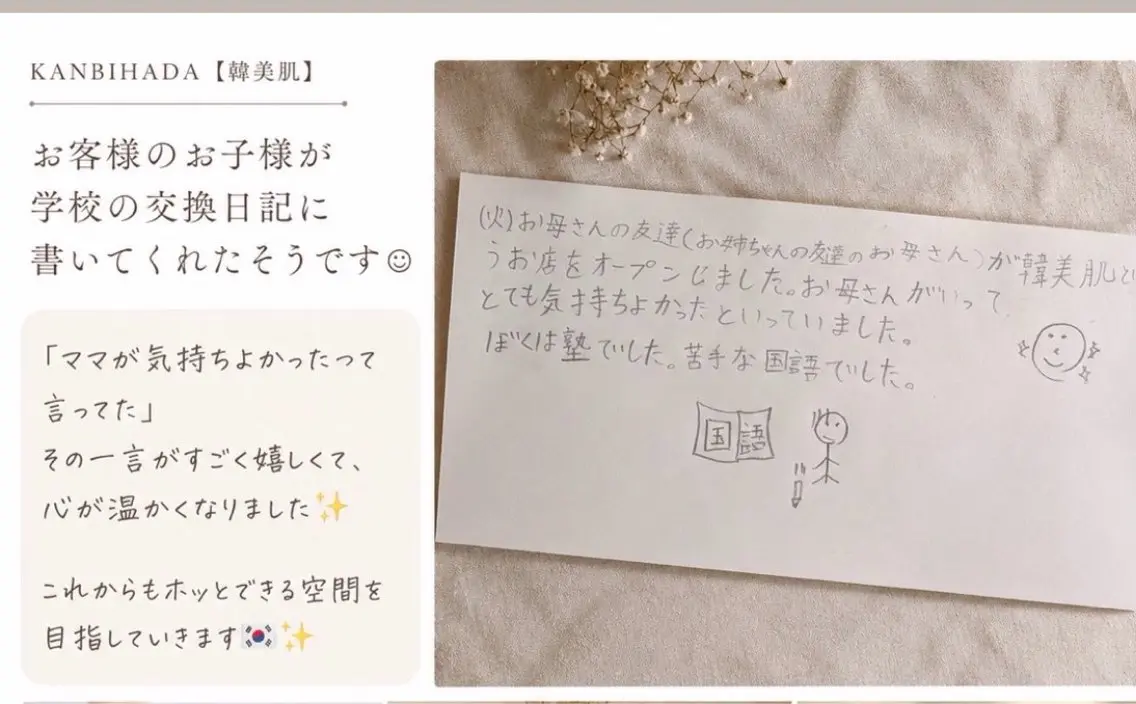 KANBIHADA【韓美肌】
お客様のお子様が
学校の交換日記に
書いてくれたそうです☺
「ママが気持ちよかったって
言ってた」
その一言がすごく嬉しくて、
心が温かくなりました✨
これからもホッとできる空間を
目指していきます🇰🇷✨
(火)お母さんの友達(お姉ちゃんの友達のお母さん)が韓美肌とい
うお店をオープンしました。お母さんがいって
とても気持ちよかったといっていました。
ぼくは塾でした。苦手な国語でした。
国語